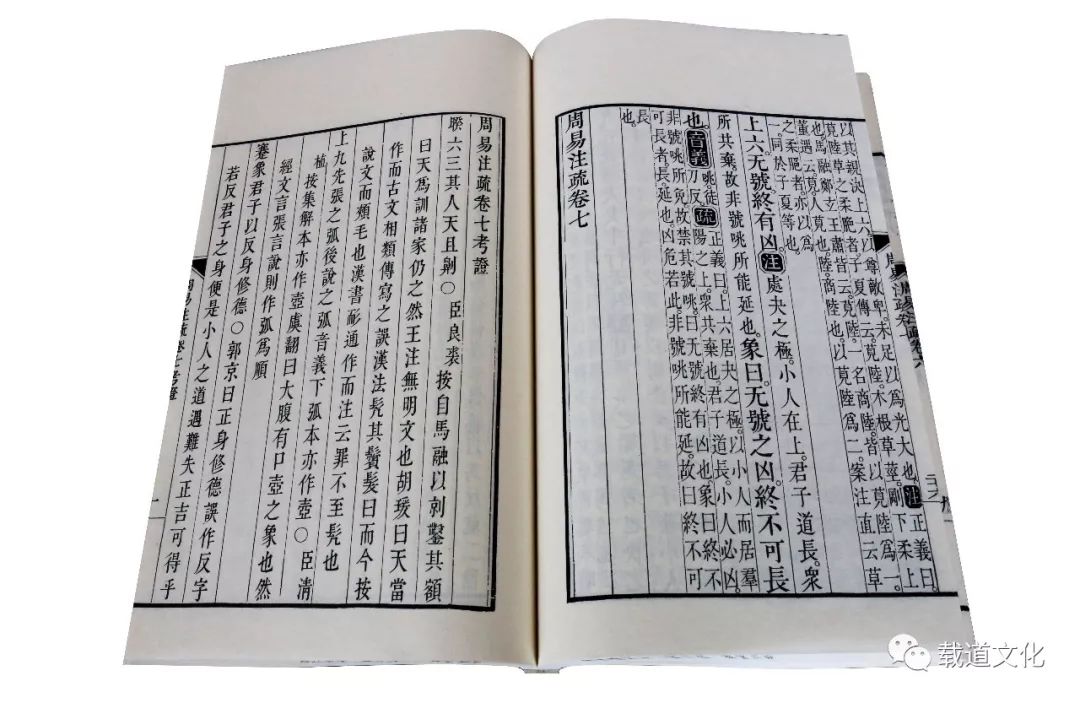 以其親決上六以尊敵卑未足以爲光大也。注正義曰。
莧陸草之柔脆者。子夏傳云。莧陸木根草莖。剛下柔上
也。馬融鄭玄王肅皆云。莧陸一名商陸。皆以莧陸爲一。
董遇云。莧人莧也。陸商陸也。以莧陸爲二。案注直云草
之柔脆者。亦以爲
一。同於子夏等也。
上六无號終有凶。注處夬之極。小人在上。君子道長。衆
所共棄。故非號咷所能延也。象曰。无號之凶。終不可長
也。音義咷。徒刀反。疏正義曰。上六居夬之極。以小人而居羣
陽之上。衆共棄也。君子道長。小人必凶。
非號咷所免。故禁其號咷。曰无號終有凶也。象曰。終不
可長者。長延也。凶危若此。非號咷所能延。故曰終不可
長
也。
周易注疏卷七
周易注疏卷七考證
睽六三其人天且劓○臣良裘按自馬融以剠鑿其額
曰天爲訓諸家仍之然王注無明文也胡瑗曰天當
作而古文相類傳寫之誤漢法髡其鬢髮曰而今按
說文而頰毛也漢書耏通作而注云罪不至髡也
上九先張之弧後說之弧音義下弧本亦作壺○臣清
植按集解本亦作壺虞翻曰大腹有口壺之象也然
經文言張言說則作弧爲順
蹇象君子以反身修德○郭京曰正身修德誤作反字
若反君子之身便是小人之道遇難失正吉可得乎
载道文化